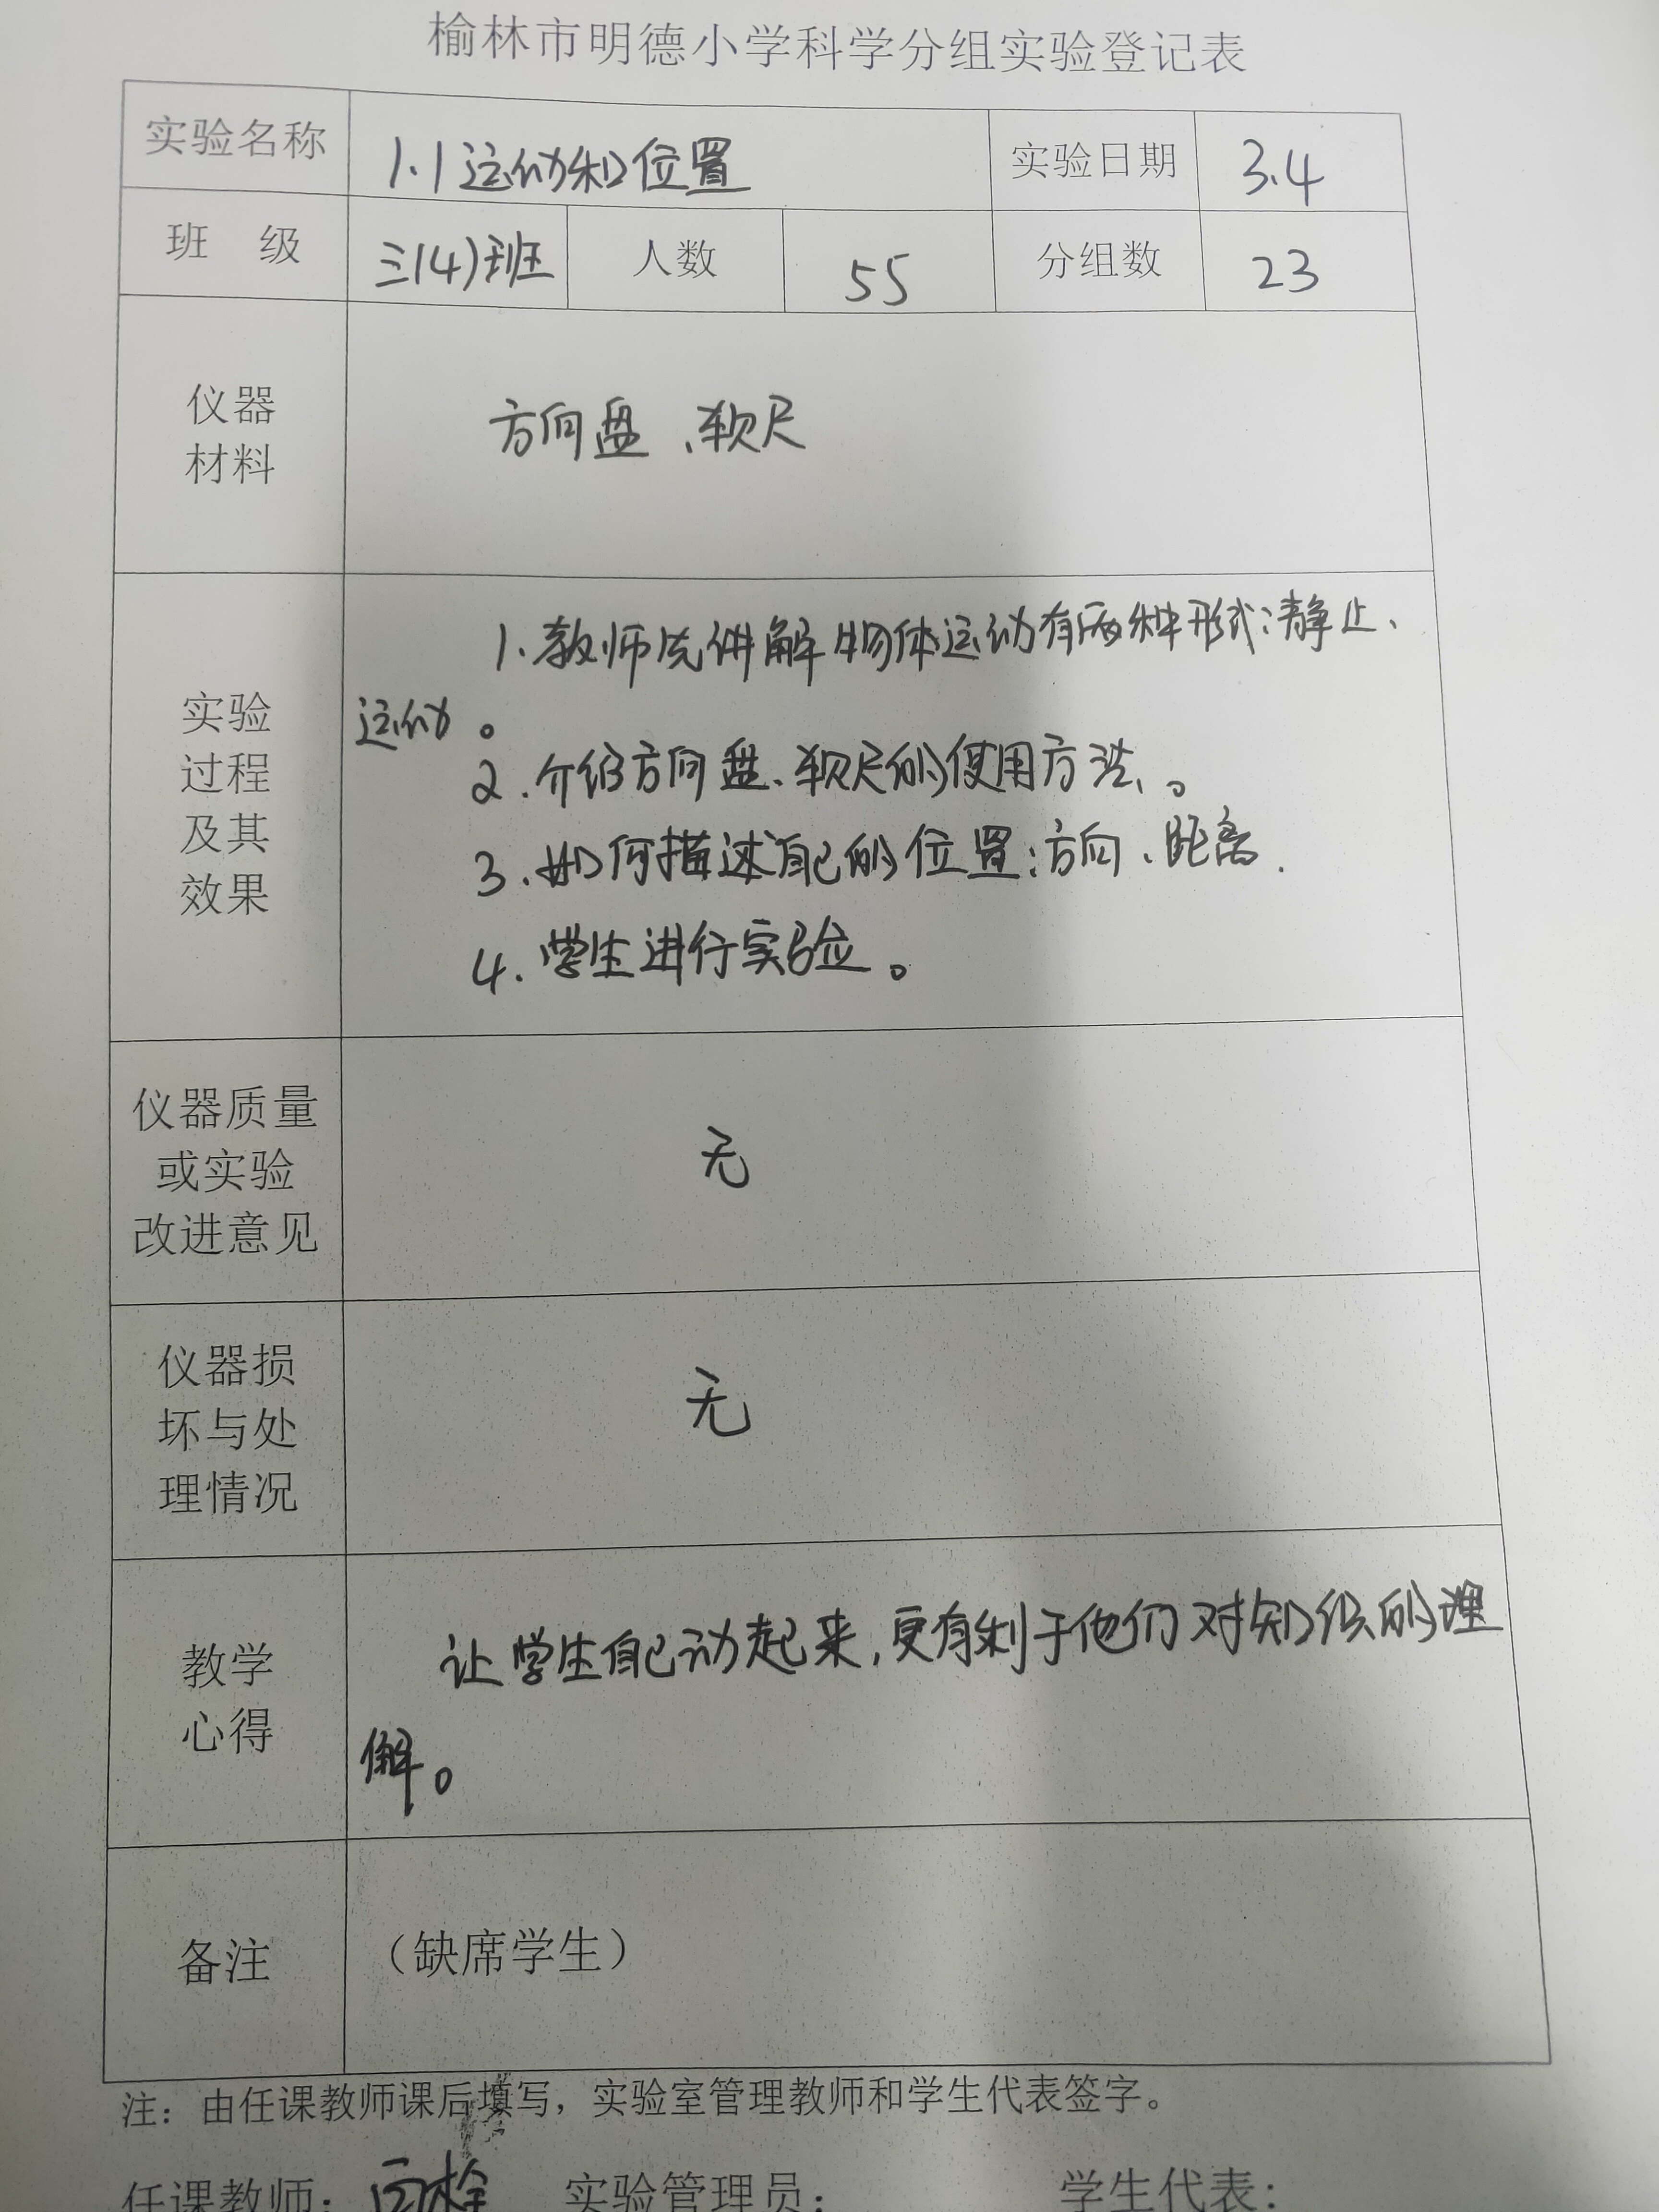 榆林市明德小学科学分组实验登记表
实验名称 1.1运动和位置 实验日期 3.4
班 级 三(4)班 人数 55 分组数 23
仪器
材料
方向盘、软尺
实验
过程
及其
效果
1.教师先讲解物体运动有两种形式:静止、
运动。
2.介绍方向盘、软尺的使用方法。
3.如何描述自己的位置:方向、距离.
4.学生进行实验。
仪器质量
或实验
改进意见
无
仪器损
坏与处
理情况
无
教学
心得
让学生自己动起来,更有利于他们对知识的理
解。
备注
（缺席学生）
注：由任课教师课后填写，实验室管理教师和学生代表签字。
任课教师： 实验管理员： 学生代表：